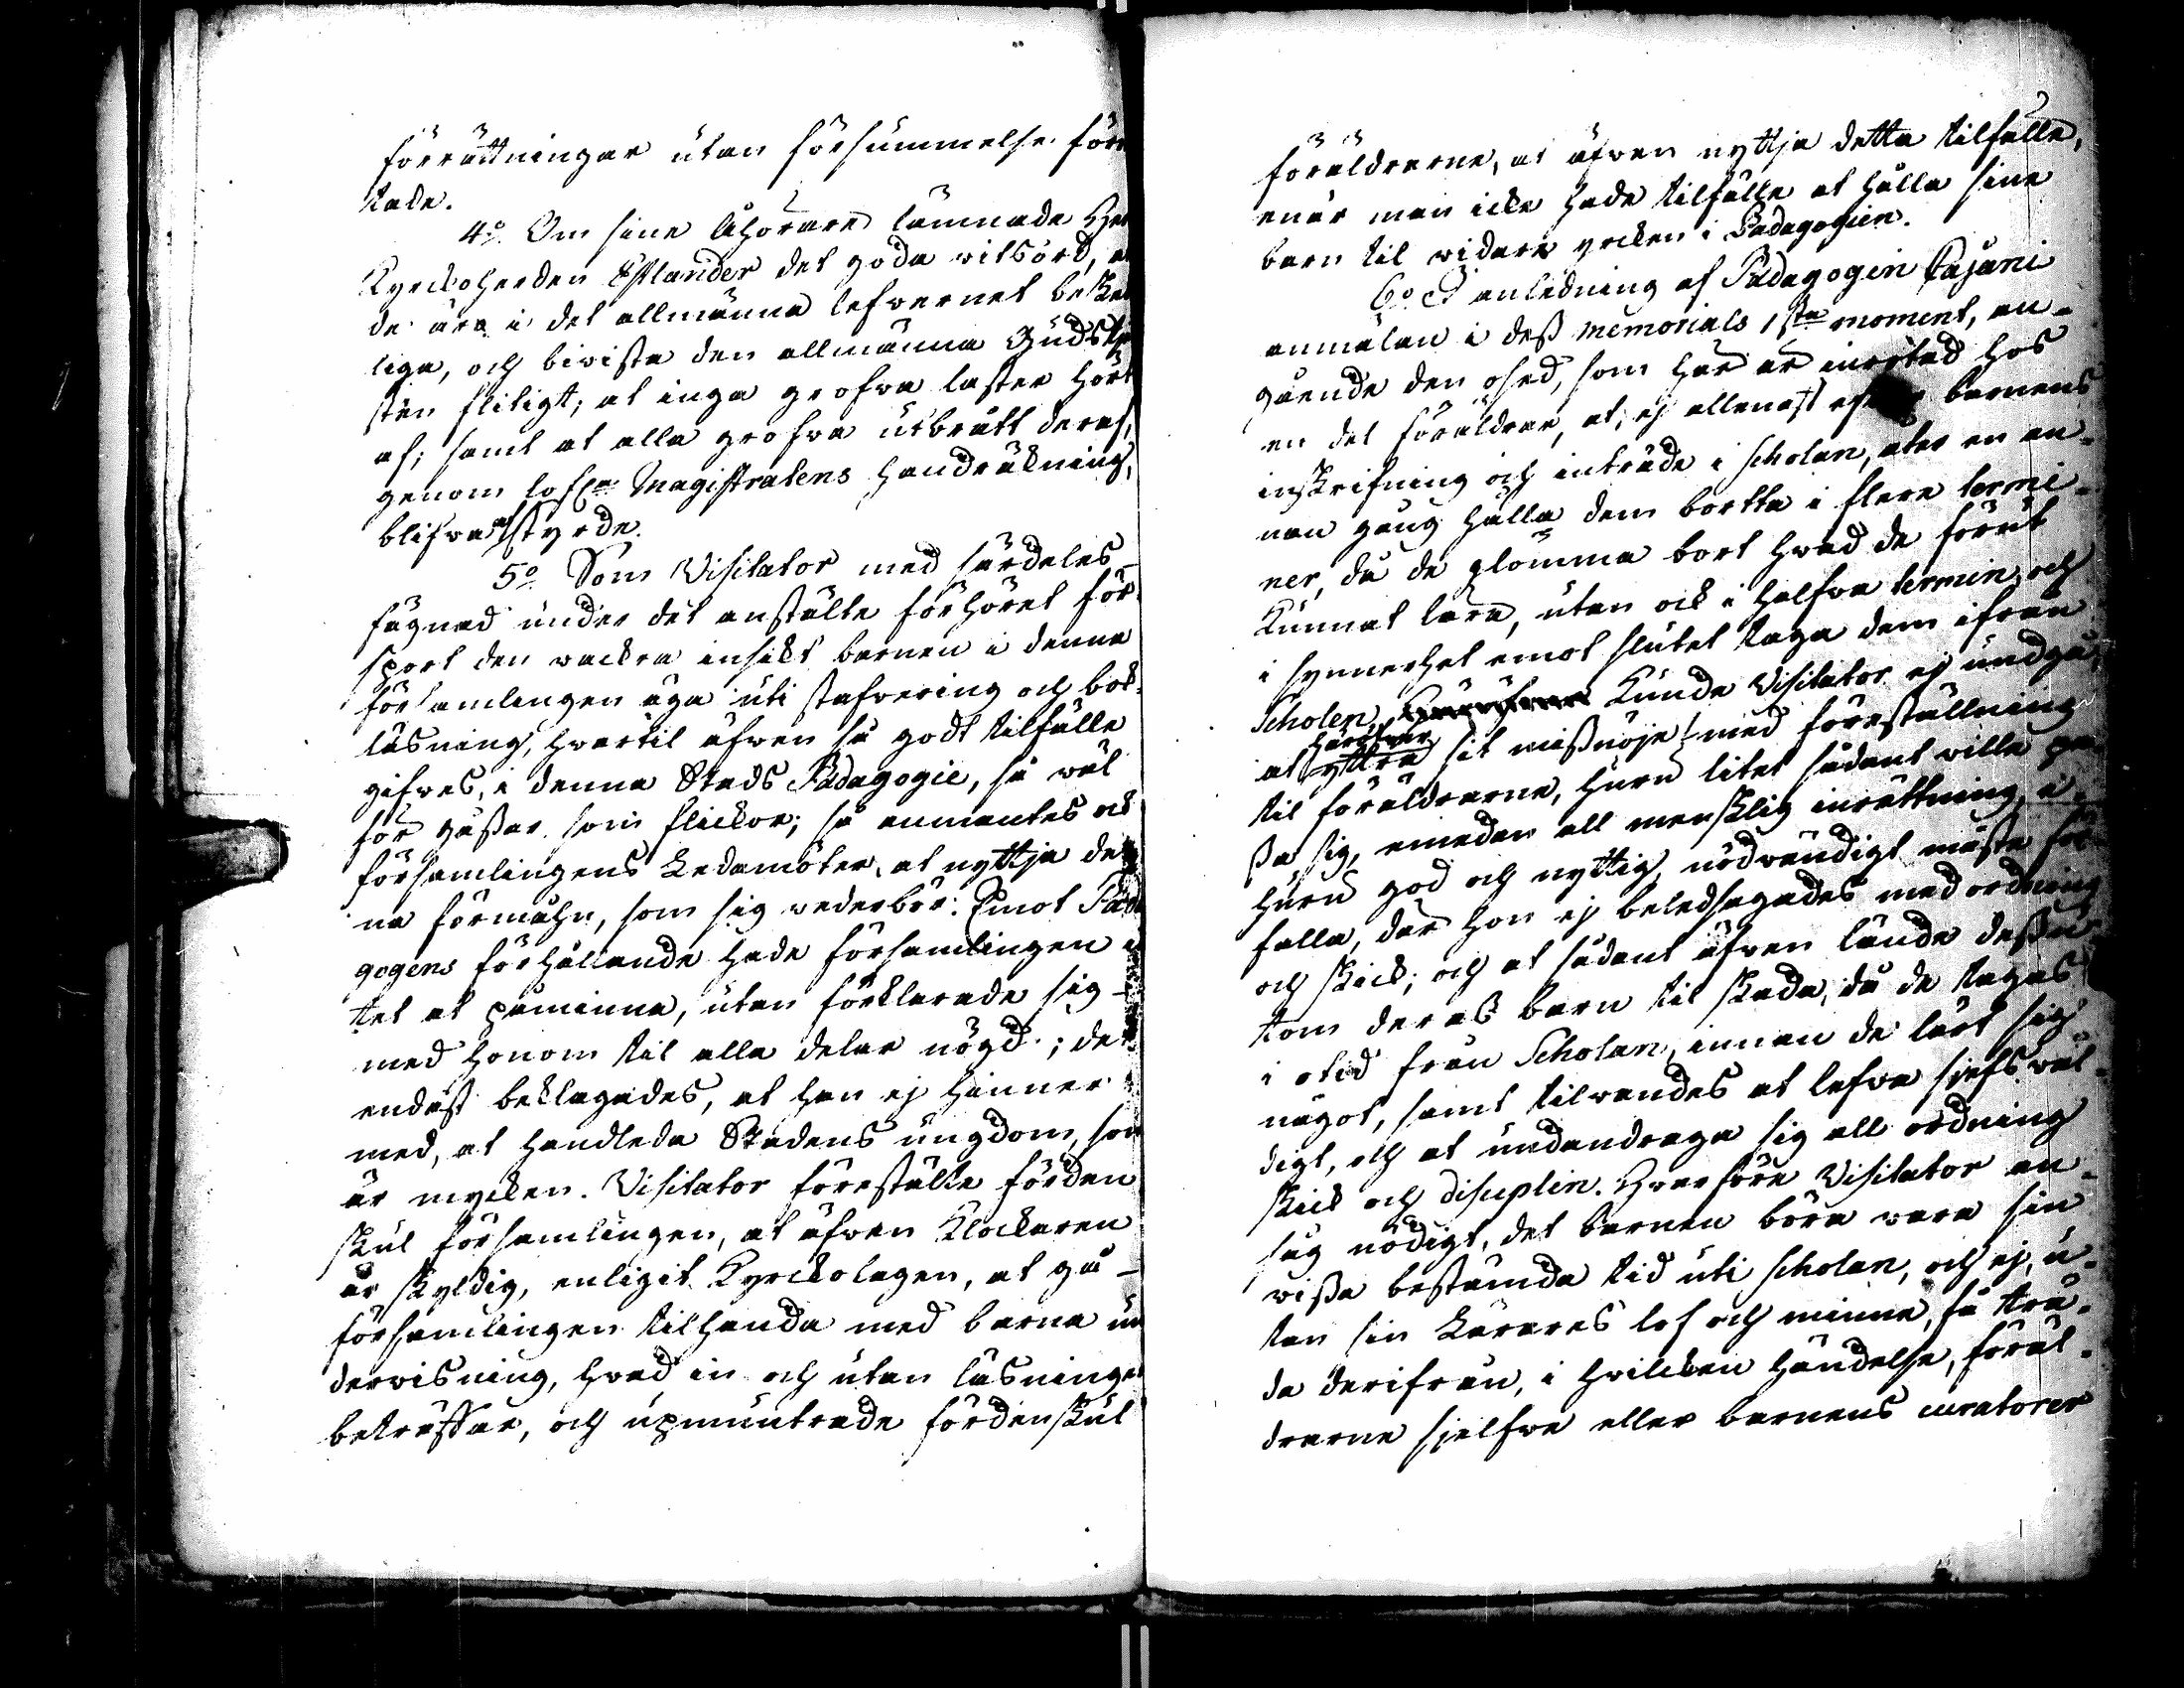 förrättningar utan försummelse för
tade.
4:o Om sine åhörare lämnade Her
Kyrckoherden Estlander det goda witsord, at
de äro i det allmänna lefwernet beske
liga, och biwista den allmänna Gudstje
sten flitigt; at inga grofwa laster hört
af; samt at alla grofwa utbrått deraf,
genom lofl:n Magistratens handräckning,
blifwa afstyrde.
5:o Som Visitator med särdeles
fägnad under det anstälte förhöret för-
sport den wackra insikt barnen i denna
församlingen äga uti stafwering och bok-
läsning, hwartil äfwen så godt tilfälle
gifwes, i denna Stads Pädagogie, så wäl
för gåssar som flickor; så anmantes ock
församlingens Ledamöter, at nyttja den
na förmåhn, som sig wederbör. Emot Päda
gogens förhållande hade församlingen in
tet at påminna, utan förklarade sig
med honom til alla delar nögd; det
endast beklagades, at han ej hinner
med, at handleda Stadens ungdom, som
är mycken. Visitator förestälte förden
skul församlingen, at äfwen Klockaren
är skyldig, enligit Kyrckolagen, at gå
församlingen tilhanda med barna un
derwisning, hwad in och utan läsningen
beträffar, och upmuntrade fördenskul
föräldrarne, at äfwen nyttja detta tilfälle,
enär man icke hade tilfälle at hålla sine
barn til widare yrcken i Pädagogien.
6:o I anledning af Pädagogen Cajani
anmälan i dess memorials 1sta moment, an-
gående den osed, som här är inrotad hos
en del föräldrar, at, ej allenast efter barnens
inskrifning och inträde i scholan, åter en an-
nan gång hålla dem bortta i flere termi-
ner, då de glömma bort hwad de förut
kunnat lära, utan ock i halfwa termin och
i synnerhet emot slutet taga dem ifrån
Scholen, kunde Visitator ej undgå,
härofwer
at yttra sit missnöje med föreställning
til föräldrarne, huru litet sådant wille pa-
ssa sig, emedan all mensklig inrättning, e-
huru god och nyttig, nödwändigt måste för-
falla, där hon ej beledsagades med ordning
och skick; och at sådant äfwen lände dessu-
tom deras barn til skada, då de tagas
i otid från Scholan, innan de lärt sig
något, samt tilwändes at lefwa sjelfswål-
digt, och at undandraga sig all ordning
skick och disciplin. Hwarföre Visitator an-
såg nödigt, det barnen böra wara sin
wissa bestämda tid uti scholan, och ej, u-
tan sin Lärares lof och minne, få trä-
da derifrån, i hwilcken händelse, föräl-
drarne sjelfwe eller barnens curatorer